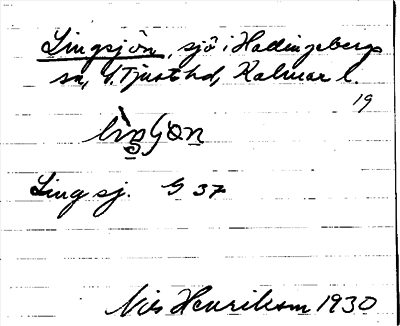 Lingsjön, sjö i Hadingebergs
sn, S. Tjust hd, Kalmar l.
19
Lingsj. G 37
Nils Henrikson 1930